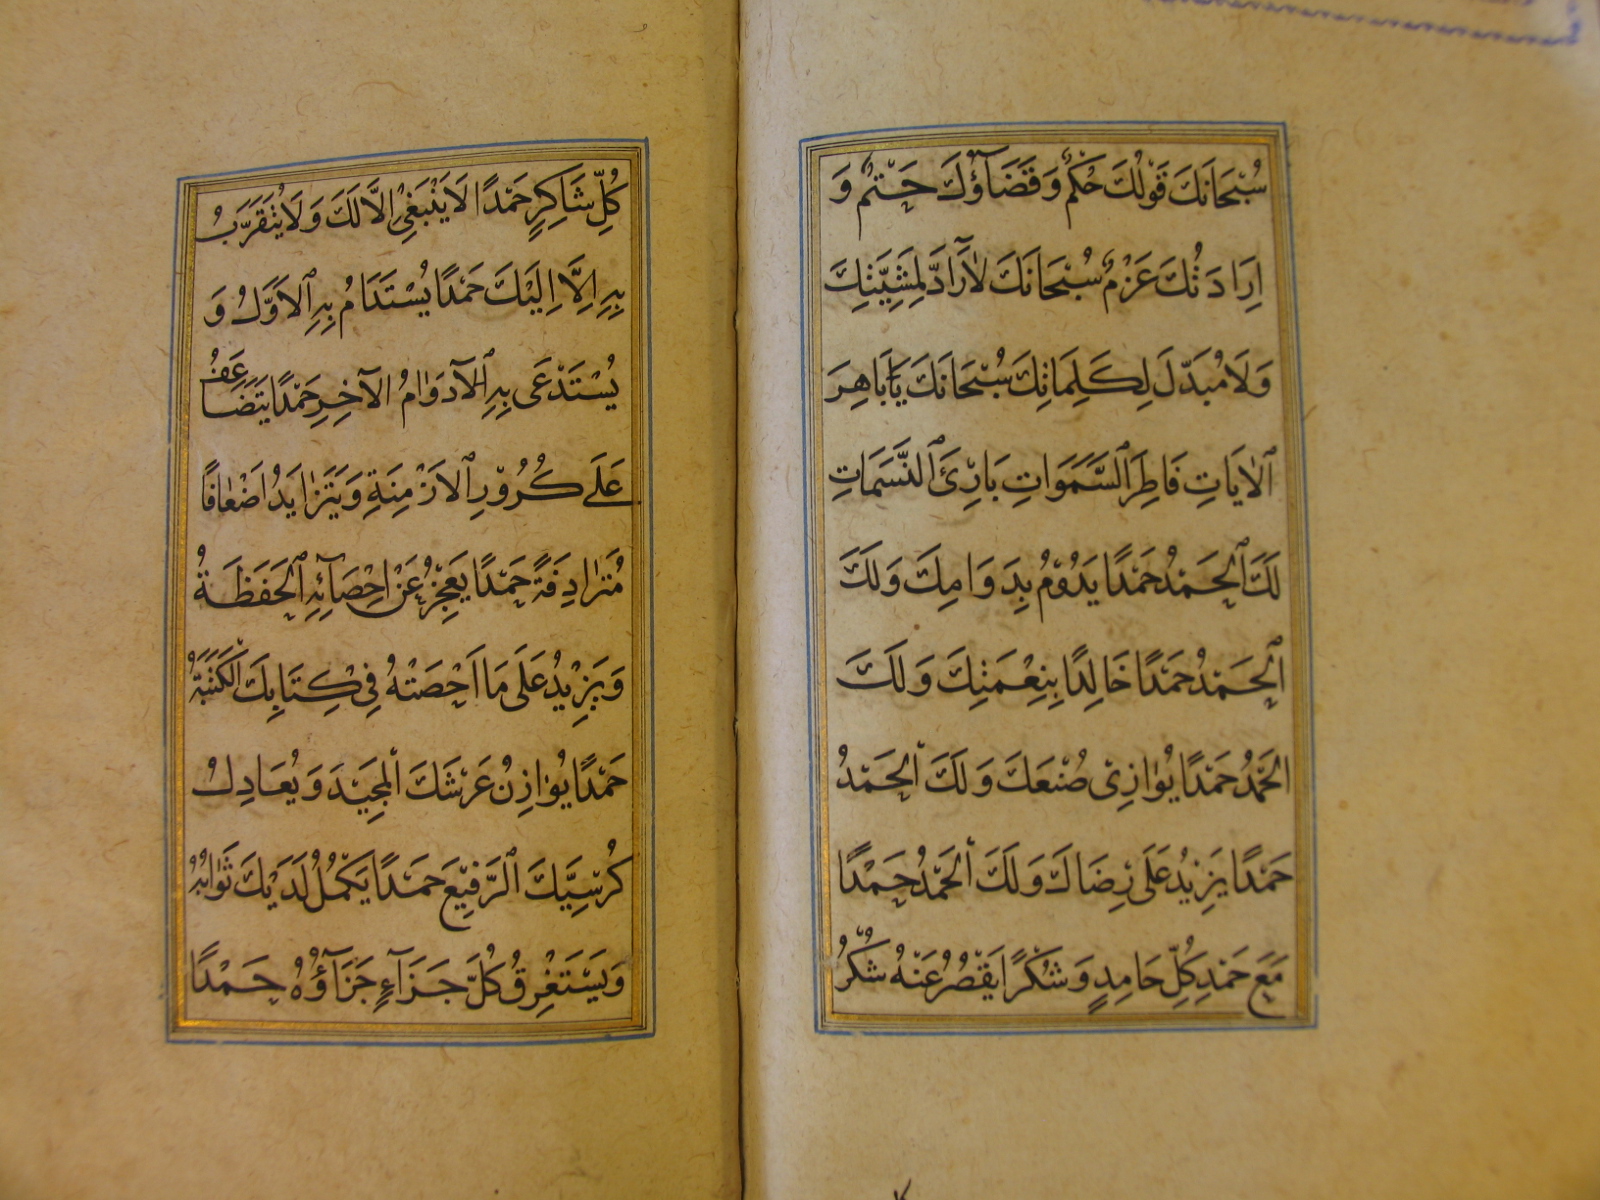 سُبْحَانَكَ قَوْلُكَ حُكْمٌ وَقَضَآؤُكَ حَتْمٌ وَ
اِرَادَتُكَ عَزْمٌ سُبْحَانَكَ لَا رَآدَّ لِمَشِيَّتِكَ
وَلَا مُبَدِّلَ لِكَلِمَاتِكَ سُبْحَانَكَ يَا بَاهِرَ
ٱلْاٰيَاتِ فَاطِرَ ٱلسَّمَوَاتِ بَارِئَ ٱلنَّسَمَاتِ
لَكَ ٱلْحَمْدُ حَمْدًا يَدُوْمُ بِدَوَامِكَ وَلَكَ
ٱلْحَمْدُ حَمْدًا خَالِدًا بِنِعْمَتِكَ وَلَكَ
الْحَمْدُ حَمْدًا يُوَازِىْ صُنْعَكَ وَلَكَ الْحَمْدُ
حَمْدًا يَزِيْدُ عَلَى رِضَاكَ وَلَكَ الْحَمْدُ حَمْدًا
مَعَ حَمْدِ كُلِّ حَامِدٍ وَشُكْرًا يَقْصُرُ عَنْهُ شُكْرُ
كُلِّ شَاكِرٍ حَمْدًا لَا يَنْبَغِىْ اِلَّا لَكَ وَلَا يُتَقَرَّبُ
بِهِ اِلَّا اِلَيْكَ حَمْدًا يُسْتَدَامُ بِهِ ٱلْاَوَّلُ وَ
يُسْتَدْعَى بِهِ ٱلْآدَوَامُ الْآخِرِ حَمْدًا يَتَضَاعَفُ
عَلَى كُرُوْرِ ٱلْاَزْمِنَةِ وَيَتَزَايَدُ اَضْعَافًا
مُتَرَادِفَةً حَمْدًا يَعْجِزُ عَنْ اِحْصَآئِهِ ٱلْحَفَظَةُ
وَيَزِيْدُ عَلَى مَا اَحْصَتْهُ فِىْ كِتَابِكَ الْكَتَبَةُ
حَمْدًا يُوَازِنُ عَرْشَكَ الْمَجِيْدَ وَيُعَادِلُ
كُرْسِيَّكَ ٱلرَّفِيْعَ حَمْدًا يَكْمُلُ لَدَيْكَ ثَوَابُهُ
وَيَسْتَغْرِقُ كُلَّ جَزَآءٍ جَزَآؤُهُ حَمْدًا